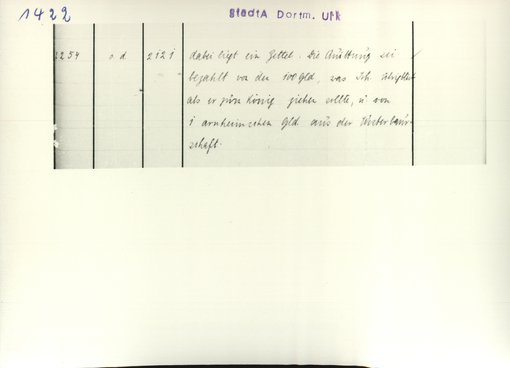 1422
StadtA Dortm. Urk
2254 s d 2121 dabei liegt ein Zettel. Die Quittung sei
bezahlt von den 100 Gld, was ich
als er zum König ziehen sollte, u von
1 arnheimschen Gld aus der
schaft.